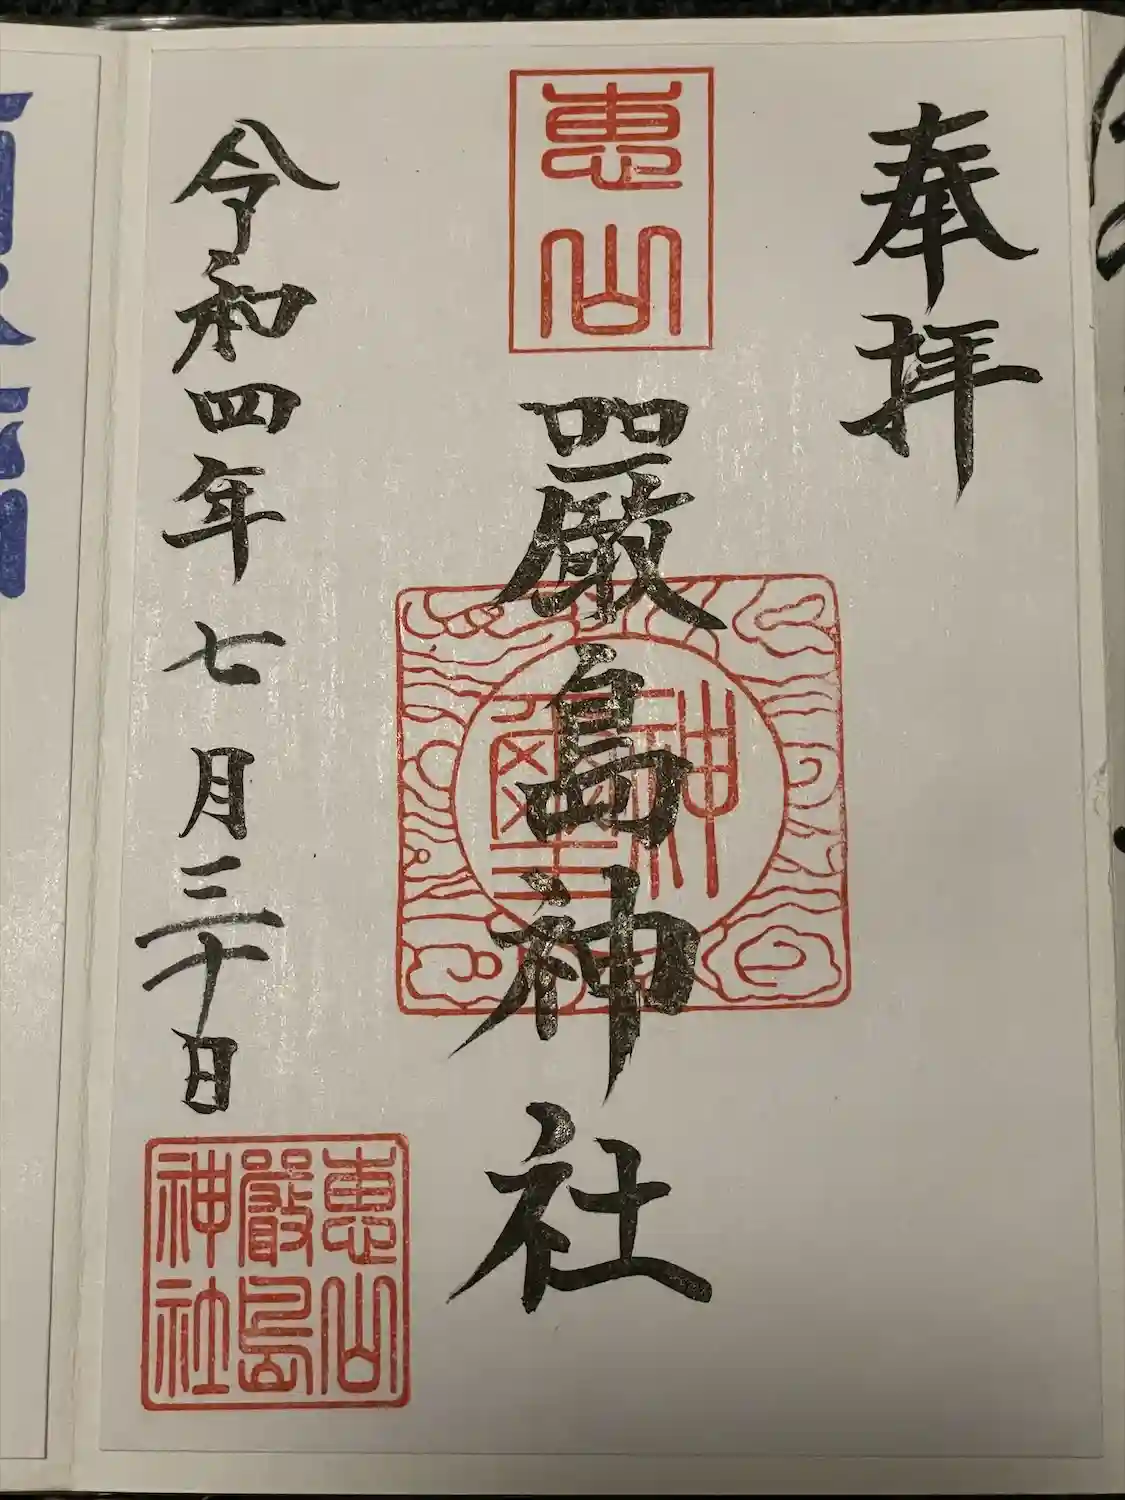 奉拝
惠山
嚴島神社
神璽
令和四年七月三十日
惠山
嚴島
神社